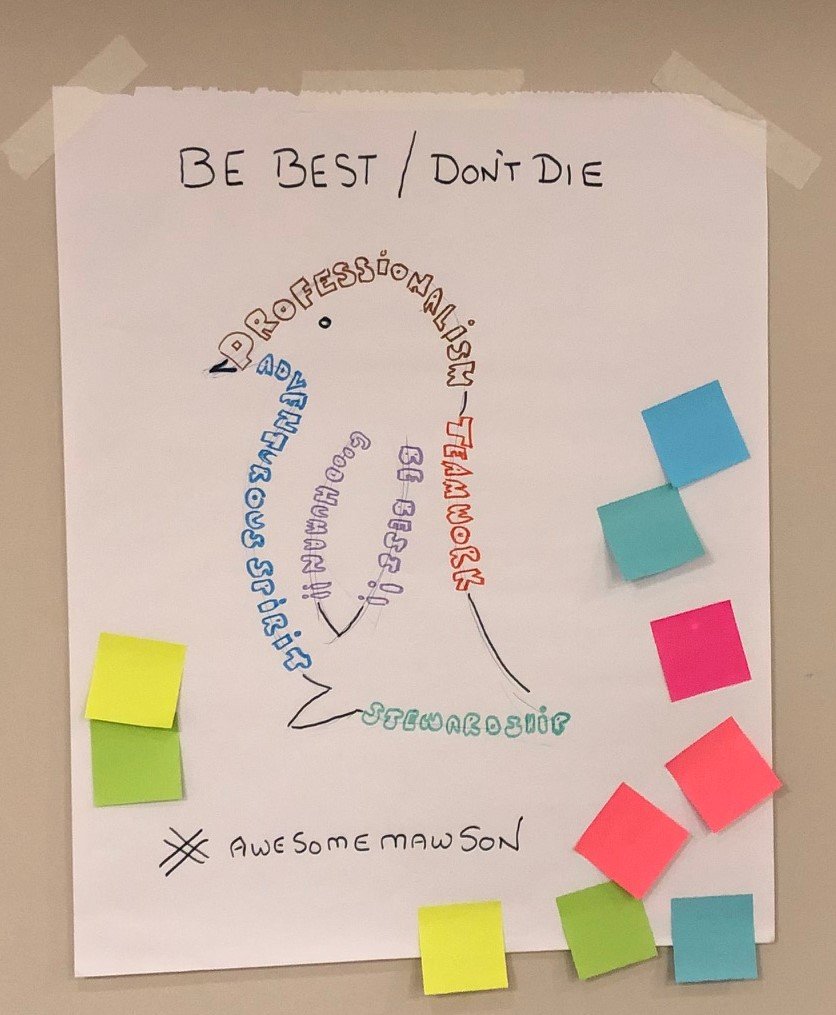 BE BEST / DON'T DIE
PROFESSIONALISM
ADVENTUROUS SPIRIT
GOOD HUMAN!!
BE BEST!!
TEAMWORK
STEWARDSHIP
# AWESOMEMAWSON